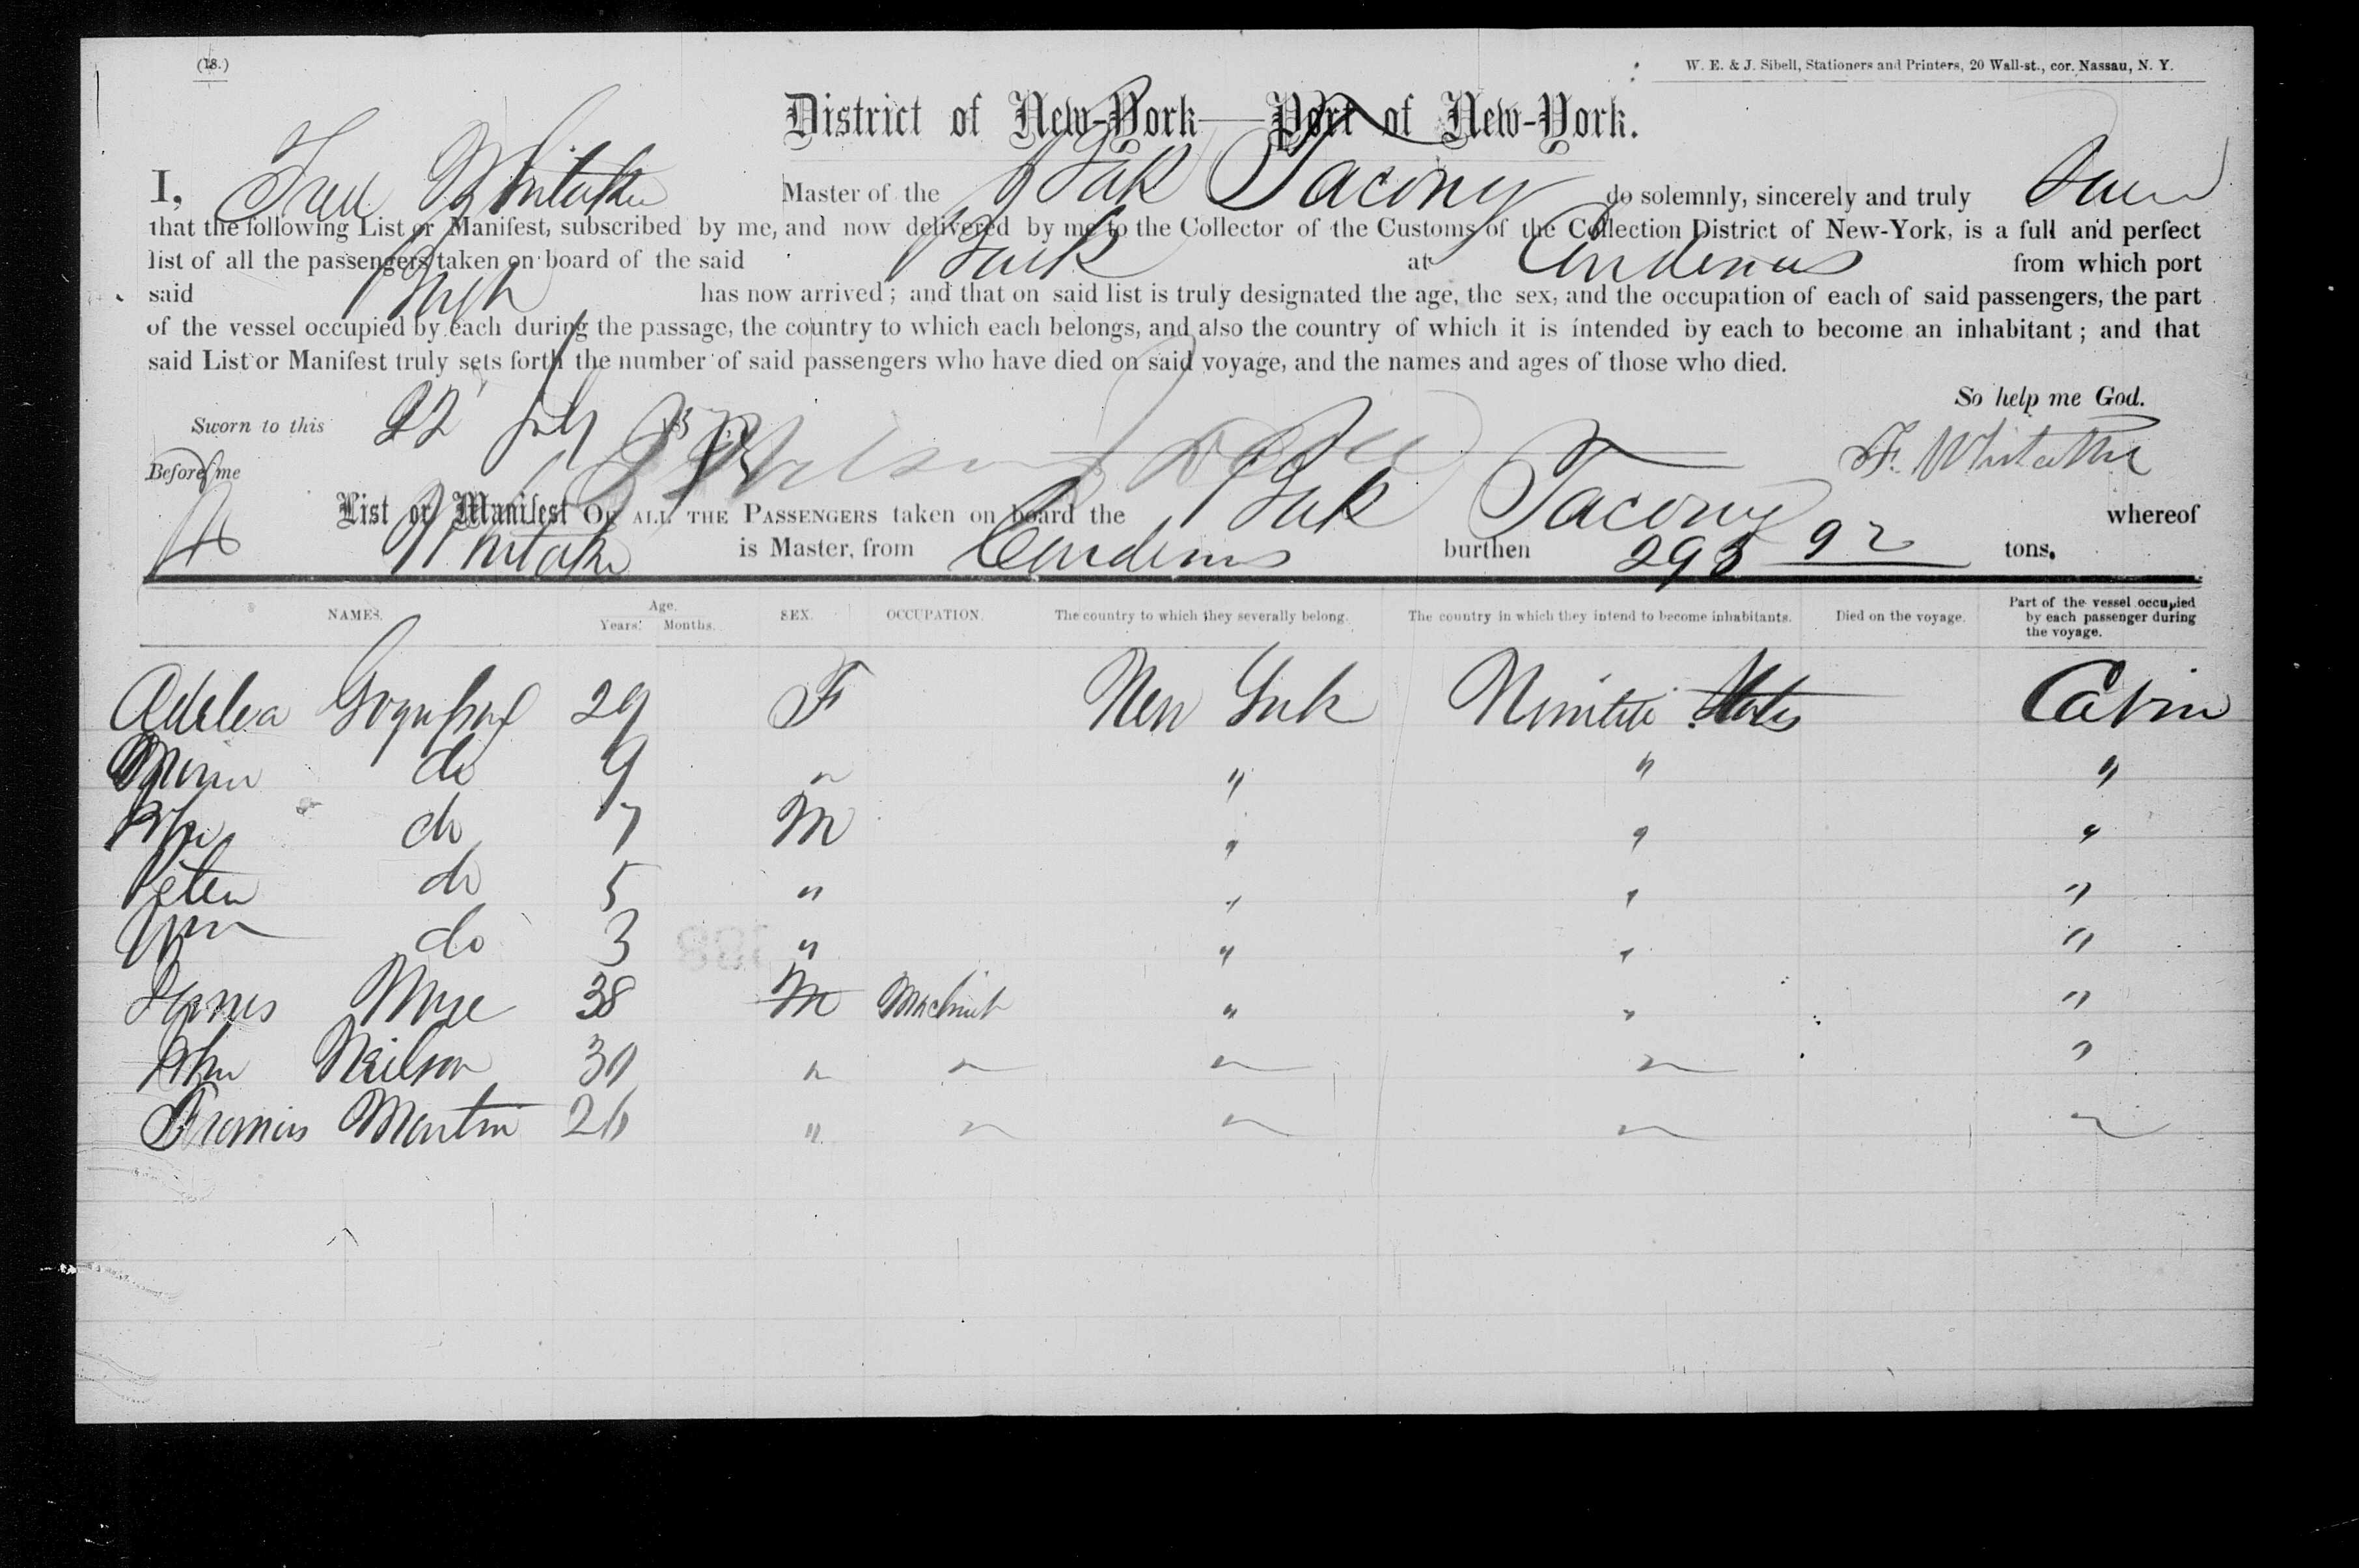 (18.)
W. E. & J. Sibell, Stationers and Printers, 20 Wall-st., cor. Nassau, N. Y.
District of New-York—Port of New-York.
I, Fred Whitaker Master of the Bark Tacony do solemnly, sincerely and truly
that the following List or Manifest, subscribed by me, and now delivered by me to the Collector of the Customs of the Collection District of New-York, is a full and perfect
list of all the passengers taken on board of the said Bark at Cardenas from which port
said has now arrived; and that on said list is truly designated the age, the sex, and the occupation of each of said passengers, the part
of the vessel occupied by each during the passage, the country to which each belongs, and also the country of which it is intended by each to become an inhabitant; and that
said List or Manifest truly sets forth the number of said passengers who have died on said voyage, and the names and ages of those who died.
So help me God.
Sworn to this 22 July
F. Whitaker
Before me
List or Manifest OF ALL THE PASSENGERS taken on board the Bark Tacony whereof
Whitaker is Master, from Cardenas burthen 293 92 tons.
NAMES. Age. Years. Months. SEX. OCCUPATION. The country to which they severally belong. The country in which they intend to become inhabitants. Died on the voyage. Part of the vessel occupied by each passenger during the voyage.
Adelea 29 F New York United States Cabin
do 9 " " " "
John do 7 M " " "
Peter do 5 " " " "
Wm do 3 " " " "
James 38 M Machinist " " "
John Neilson 30 " " " " "
Thomas Martin 26 " " " " "